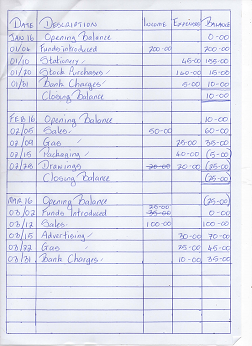 DATE DESCRIPTION INCOME EXPENSES BALANCE
JAN 16 Opening Balance 0-00
01/04 Funds introduced 200-00 200-00
01/10 Stationery ✓ 45-00 155-00
01/20 Stock Purchases ✓ 140-00 15-00
01/31 Bank Charges ✓ 5-00 10-00
Closing Balance 10-00
FEB 16 Opening Balance 10-00
02/05 Sales 50-00 60-00
02/09 Gas ✓ 25-00 35-00
02/15 Packaging ✓ 40-00 (5-00)
02/28 Drawings 20-00 20-00 (25-00)
Closing Balance (25-00)
MAR 16 Opening Balance (25-00)
25-00
03/02 Funds Introduced 35-00 0-00
03/12 Sales 100-00 100-00
03/15 Advertising ✓ 30-00 70-00
03/22 Gas ✓ 25-00 45-00
03/31 Bank Charges ✓ 10-00 35-00